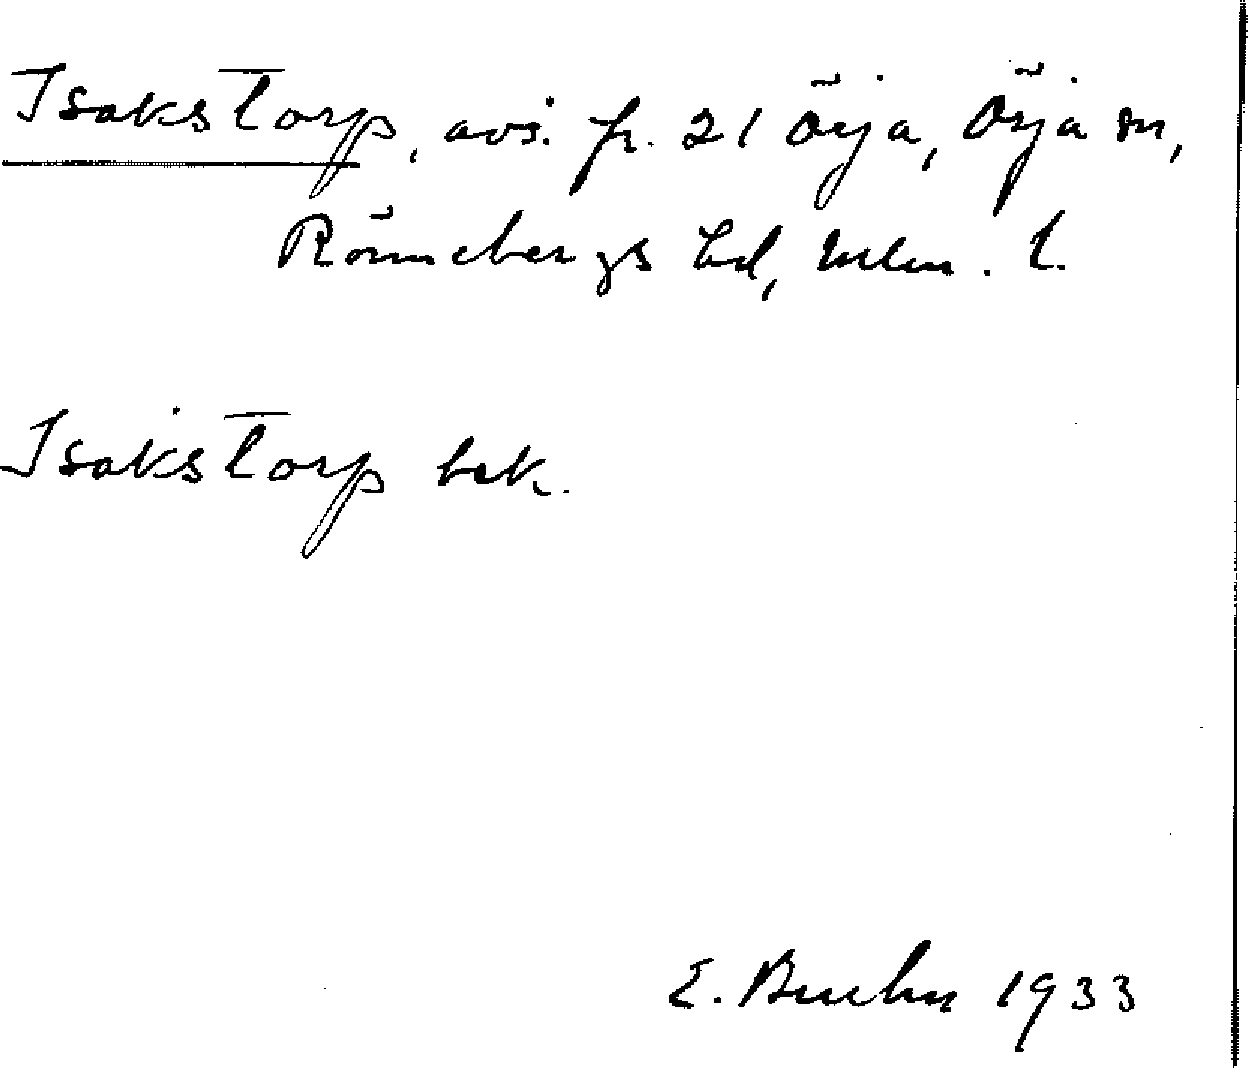 Isakstorp, avs. fr. 21 Örja, Örja sn,
Rönnebergs hd, Mlm. l.
Isakstorp bek.
E. Bruhn 1933